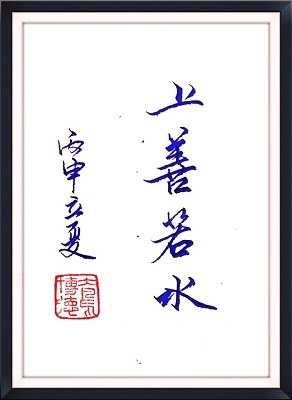 上善若水
丙申立夏